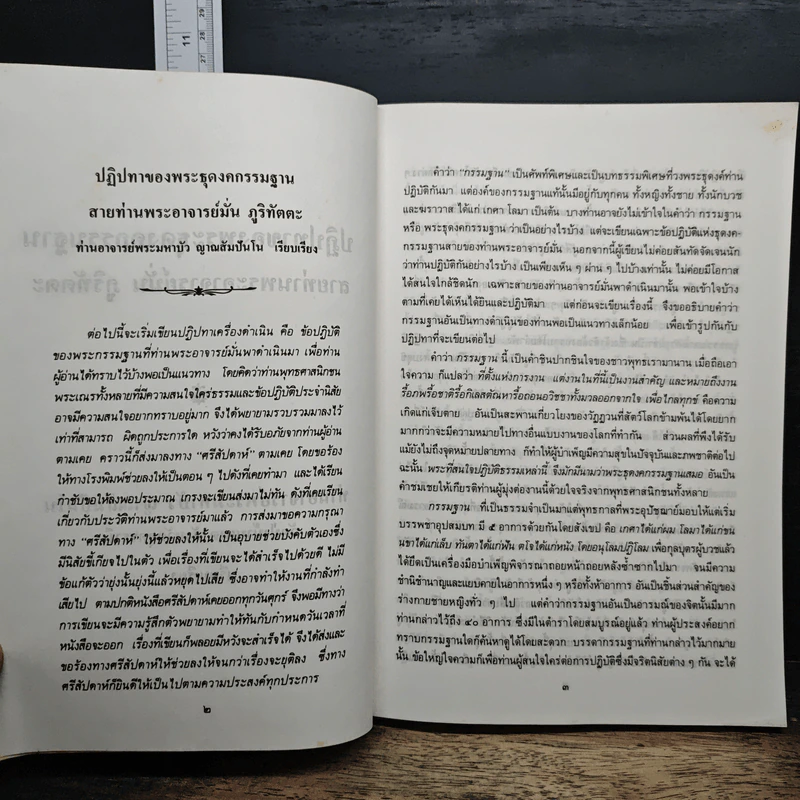 11
ปฏิปทาของพระธุดงคกรรมฐาน
สายท่านพระอาจารย์มั่น ภูริทัตตะ
ท่านอาจารย์พระมหาบัว ญาณสัมปันโน เรียบเรียง
ต่อไปนี้จะเริ่มเขียนปฏิปทาเครื่องดำเนิน คือ ข้อปฏิบัติ
ของพระกรรมฐานที่ท่านพระอาจารย์มั่นพาดำเนินมา เพื่อท่าน
ผู้อ่านได้ทราบไว้บ้างพอเป็นแนวทาง โดยคิดว่าท่านพุทธศาสนิกชน
พระเณรทั้งหลายที่มีความสนใจใคร่ธรรมและข้อปฏิบัติประจำนิสัย
อาจมีความสนใจอยากทราบอยู่มาก จึงได้พยายามรวบรวมมาลงไว้
เท่าที่สามารถ ผิดถูกประการใด หวังว่าคงได้รับอภัยจากท่านผู้อ่าน
ตามเคย คราวนี้ก็ส่งมาลงทาง “ศรีสัปดาห์” ตามเคย โดยขอร้อง
ให้ทางโรงพิมพ์ช่วยลงให้เป็นตอน ๆ ไปดังที่เคยทำมา และได้เรียน
กำชับขอให้ลงพอประมาณ เกรงจะเขียนส่งมาไม่ทัน ดังที่เคยเรียน
เกี่ยวกับประวัติท่านพระอาจารย์มาแล้ว การส่งมาขอความกรุณา
ทาง “ศรีสัปดาห์” ให้ช่วยลงให้นั้น เป็นอุบายช่วยบังคับตัวเองซึ่ง
มีนิสัยขี้เกียจไปในตัว เพื่อเรื่องที่เขียนจะได้สำเร็จไปด้วยดี ไม่มี
ข้อแก้ตัวว่ายุ่งนั้นยุ่งนี้แล้วหยุดไปเสีย ซึ่งอาจทำให้งานที่กำลังทำ
เสียไป ตามปกติหนังสือศรีสัปดาห์เคยออกทุกวันศุกร์ จึงพอมีทางว่า
การเขียนจะมีความรู้สึกตัวพยายามทำให้ทันกับกำหนดวันเวลาที่
หนังสือจะออก เรื่องที่เขียนก็พลอยมีหวังจะสำเร็จได้ จึงได้ส่งและ
ขอร้องทางศรีสัปดาห์ให้ช่วยลงให้จนกว่าเรื่องจะยุติลง ซึ่งทาง
ศรีสัปดาห์ก็ยินดีให้เป็นไปตามความประสงค์ทุกประการ
๒
คำว่า “กรรมฐาน” เป็นศัพท์พิเศษและเป็นบทธรรมพิเศษที่วงพระธุดงค์ท่าน
ปฏิบัติกันมา แต่องค์ของกรรมฐานแท้นั้นมีอยู่กับทุกคน ทั้งหญิงทั้งชาย ทั้งนักบวช
และฆราวาส ได้แก่ เกศา โลมา เป็นต้น บางท่านอาจยังไม่เข้าใจในคำว่า กรรมฐาน
หรือ พระธุดงคกรรมฐาน ว่าเป็นอย่างไรบ้าง แต่จะเขียนเฉพาะข้อปฏิบัติแห่งธุดงค-
กรรมฐานสายของท่านพระอาจารย์มั่น นอกจากนี้ผู้เขียนไม่ค่อยสันทัดจัดเจนนัก
ว่าท่านปฏิบัติกันอย่างไรบ้าง เป็นเพียงเห็น ๆ ผ่าน ๆ ไปบ้างเท่านั้น ไม่ค่อยมีโอกาส
ได้สนใจใกล้ชิดนัก เฉพาะสายของท่านอาจารย์มั่นพาดำเนินมานั้น พอเข้าใจบ้าง
ตามที่เคยได้เห็นได้ยินและปฏิบัติมา แต่ก่อนจะเขียนเรื่องนี้ จึงขออธิบายคำว่า
กรรมฐานอันเป็นทางดำเนินของท่านพอเป็นแนวทางเล็กน้อย เพื่อเข้ารูปกันกับ
ปฏิปทาที่จะเขียนต่อไป
คำว่า กรรมฐาน นี้ เป็นคำชินปากชินใจของชาวพุทธเรามานาน เมื่อถือเอา
ใจความ ก็แปลว่า ที่ตั้งแห่งการงาน แต่งานในที่นี้เป็นงานสำคัญ และหมายถึงงาน
รื้อภพรื้อชาติรื้อกิเลสตัณหารื้อถอนอวิชชาทั้งมวลออกจากใจ เพื่อไกลทุกข์ คือความ
เกิดแก่เจ็บตาย อันเป็นสะพานเกี่ยวโยงของวัฏฏวนที่สัตว์โลกข้ามพ้นได้โดยยาก
มากกว่าจะมีความหมายไปทางอื่นแบบงานของโลกที่ทำกัน ส่วนผลที่พึงได้รับ
แม้ยังไม่ถึงจุดหมายปลายทาง ก็ทำให้ผู้บำเพ็ญมีความสุขในปัจจุบันและภพชาติต่อไป
ฉะนั้น พระที่สนใจปฏิบัติธรรมเหล่านี้ จึงมักมีนามว่าพระธุดงคกรรมฐานเสมอ อันเป็น
คำชมเชยให้เกียรติท่านผู้มุ่งต่องานนี้ด้วยใจจริงจากพุทธศาสนิกชนทั้งหลาย
กรรมฐาน ที่เป็นธรรมจำเป็นมาแต่พุทธกาลที่พระอุปัชฌาย์มอบให้แต่เริ่ม
บรรพชาอุปสมบท มี ๕ อาการด้วยกันโดยสังเขป คือ เกศาได้แก่ผม โลมาได้แก่ขน
นขาได้แก่เล็บ ทันตาได้แก่ฟัน ตโจได้แก่หนัง โดยอนุโลมปฏิโลม เพื่อกุลบุตรผู้บวชแล้ว
ได้ยึดเป็นเครื่องมือบำเพ็ญพิจารณาถอยหน้าถอยหลังซ้ำซากไปมา จนมีความ
ชำนิชำนาญและแยบคายในอาการหนึ่ง ๆ หรือทั้งห้าอาการ อันเป็นชิ้นส่วนสำคัญของ
ร่างกายชายหญิงทั่ว ๆ ไป แต่คำว่ากรรมฐานอันเป็นอารมณ์ของจิตนั้นมีมาก
ท่านกล่าวไว้ถึง ๔๐ อาการ ซึ่งมีในตำราโดยสมบูรณ์อยู่แล้ว ท่านผู้ประสงค์อยาก
ทราบกรรมฐานใดก็ค้นหาดูได้โดยสะดวก บรรดากรรมฐานที่ท่านกล่าวไว้มากมาย
นั้น ข้อใหญ่ใจความก็เพื่อท่านผู้สนใจใคร่ต่อการปฏิบัติซึ่งมีจริตนิสัยต่าง ๆ กัน จะได้
๓